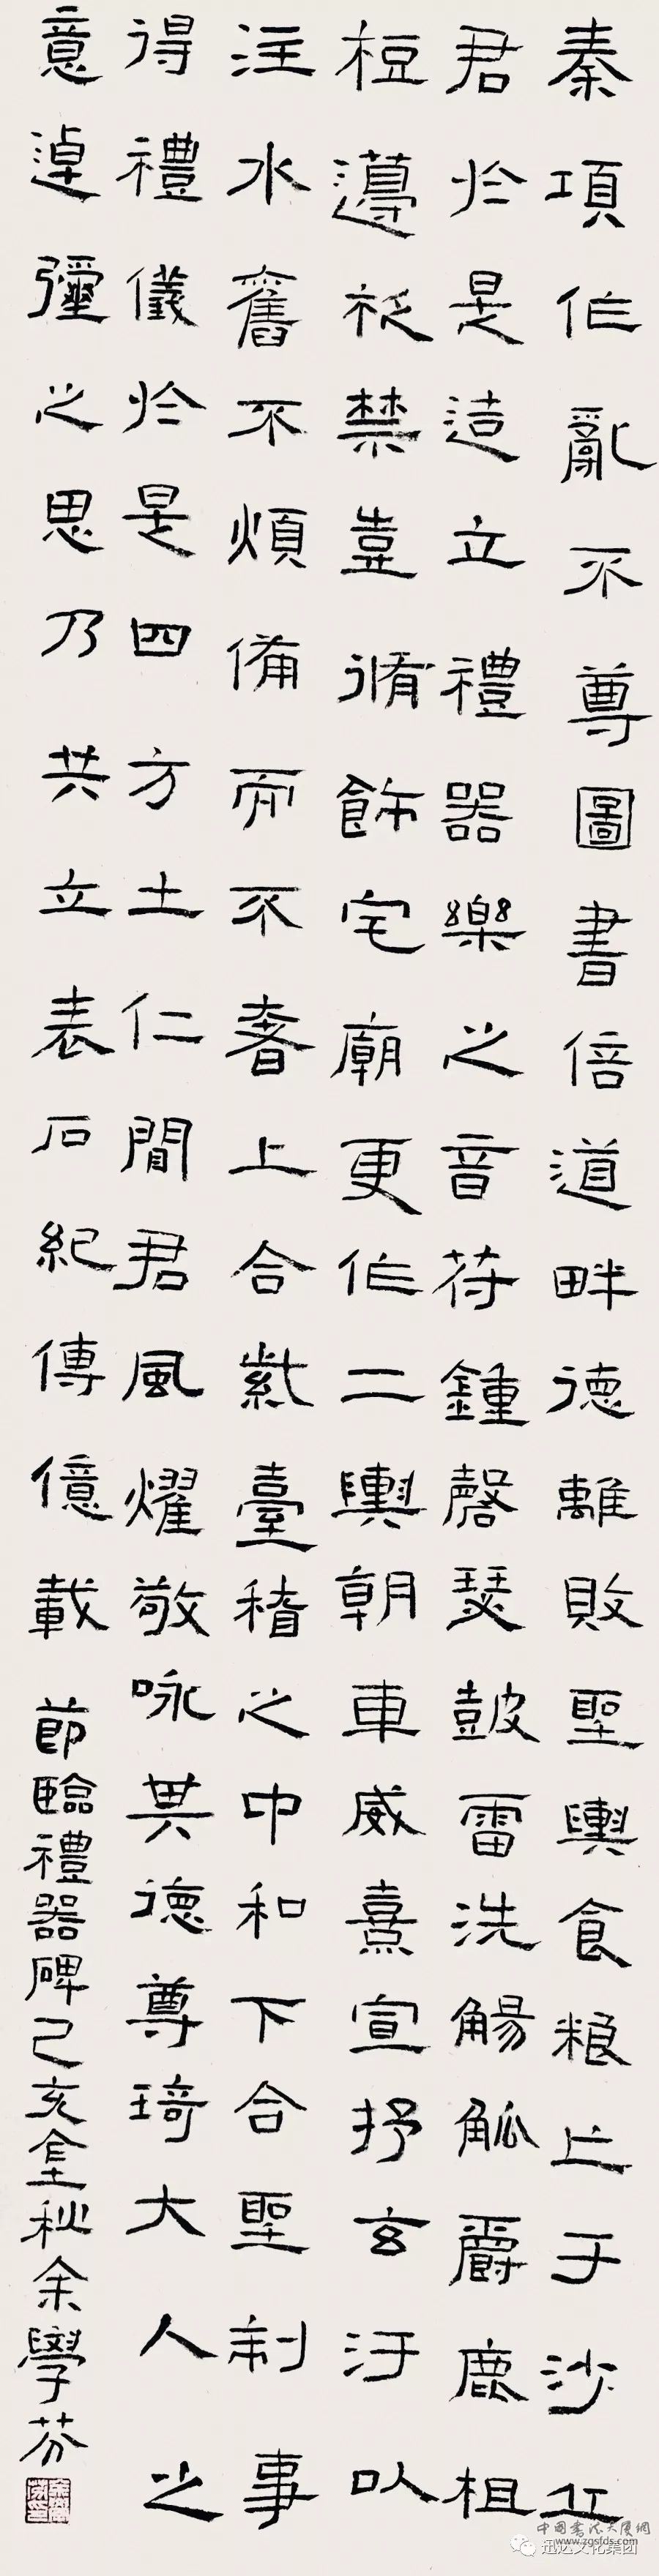 秦項作亂不尊圖書倍道畔德離敗聖輿食粮亡于沙丘
君於是造立禮器樂之音苻鍾磬瑟鼓雷洗觴觚爵鹿柤
梪籩柉禁壺脩飾宅廟更作二輿朝車威熹宣抒玄汙以
注水舊不煩備而不奢上合紫臺稽之中和下合聖制事
得禮儀於是四方土仁聞君風燿敬咏其德尊琦大人之
意逴彌之思乃共立表石紀傳億載 節臨禮器碑己亥金秋余學芬
中國書法大廈網
www.zgsfds.com
迅达文化集团